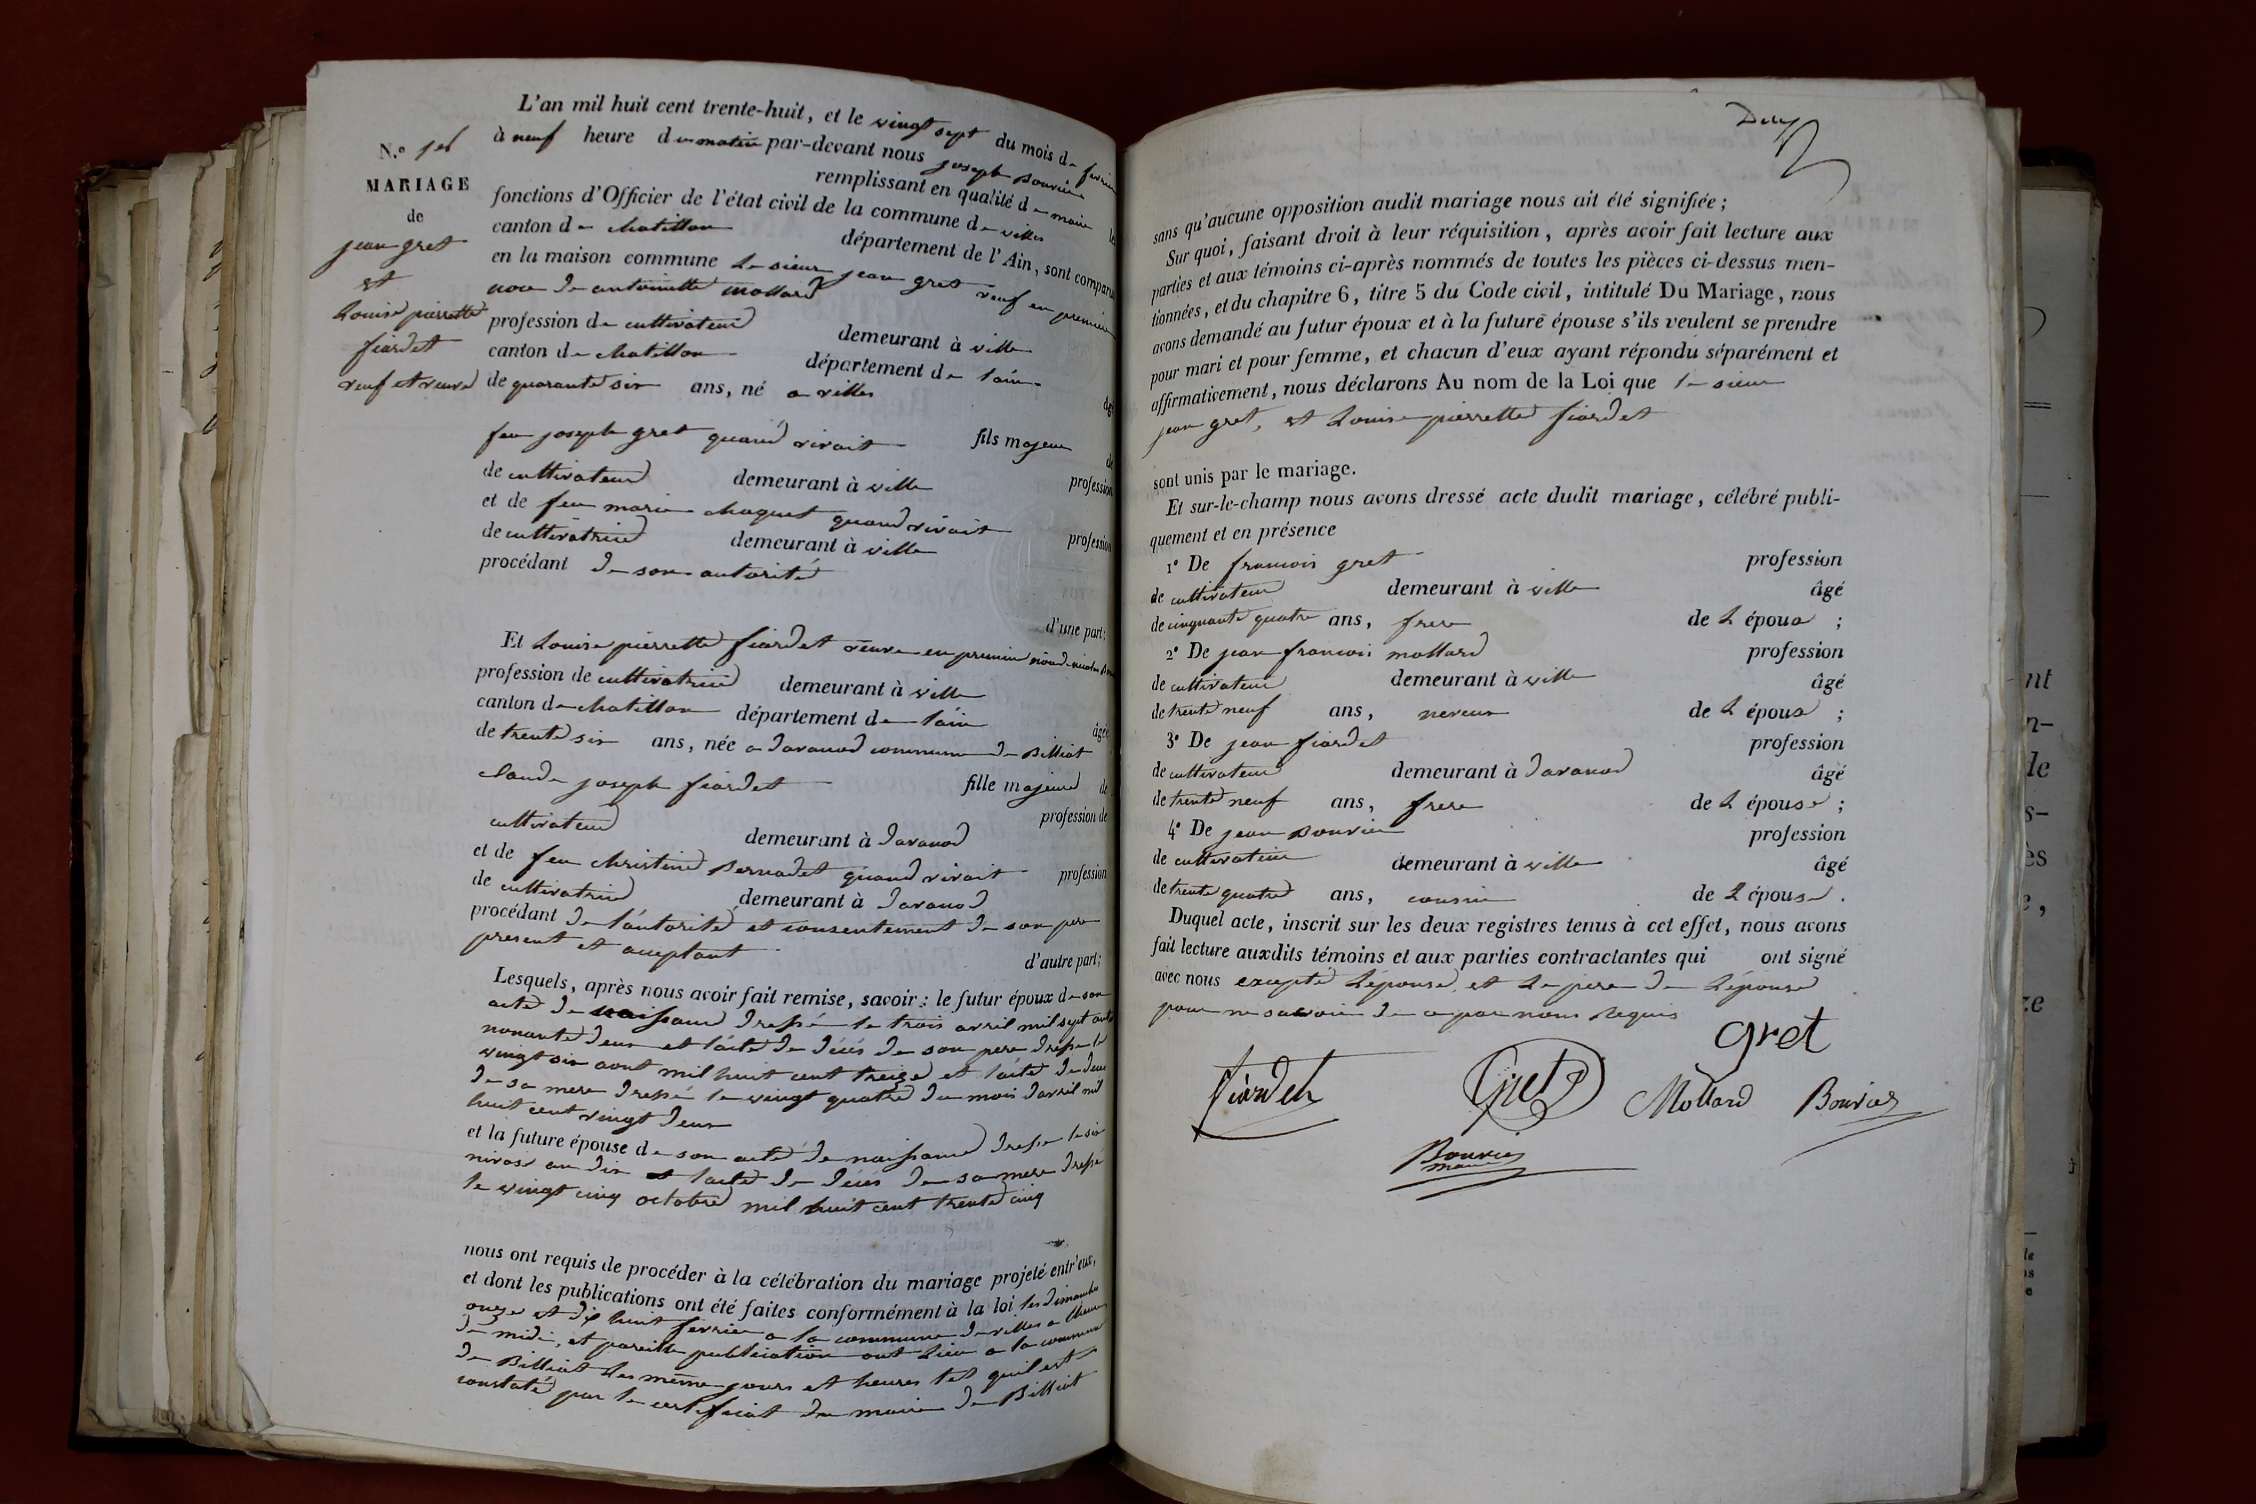 N.o
MARIAGE
de
jean gret
et
Louise pierrette
fiardet
veuf et veuve
L'an mil huit cent trente-huit, et le vingt sept du mois de fevrier
à neuf heure du matin par-devant nous joseph Bouvier
remplissant en qualité de maire les
fonctions d'Officier de l'état civil de la commune de villes
canton de chatillon département de l'Ain, sont comparus
en la maison commune Le sieur jean gret veuf en premier
noce de antoinette mollard
profession de cultivateur demeurant à ville
canton de chatillon département de lain
âgé
de quarante six ans, né a villes
fils majeur de
feu joseph gret quand vivait profession
de cultivateur demeurant à ville
et de feu marie chaquet quand vivait profession
de cultivatrice demeurant à ville
procédant de son autorité
d'une part;
Et Louise pierrette fiardet veuve en premier
profession de cultivatrice demeurant à ville
canton de chatillon département de lain âgée
de trente six ans, née a davanod commune de Billiat
fille majeure de
claude joseph fiardet profession de
cultivateur demeurant à davanod
et de feu christine Bernadet quand vivait profession
de cultivatrice demeurant à davanod
procédant de l'autorité et consentement de son pere
present et acceptant d'autre part;
Lesquels, après nous avoir fait remise, savoir: le futur époux de son
acte de naissance dressé le trois avril mil sept cent
nonante deux et l'acte de décés de son pere dressé le
vingt six aout mil huit cent treize et l'acte de deces
de sa mere dressé le vingt quatre du mois davril mil
huit cent vingt deux
et la future épouse de son acte de naissance dressé le six
nivose an dix et lacte de décés de sa mere dressé
le vingt cinq octobre mil huit cent trente cinq
nous ont requis de procéder à la célébration du mariage projeté entr'eux,
et dont les publications ont été faites conformément à la loi les dimanches
onze et dix huit fevrier a la commune de villes a lheure
de midi, et pareille publication ont lieu a la commune
de Billiat les même jours et heures tel quil est
constaté par le certificat du maire de Billiat
sans qu'aucune opposition audit mariage nous ait été signifiée;
Sur quoi, faisant droit à leur réquisition, après avoir fait lecture aux
parties et aux témoins ci-après nommés de toutes les pièces ci-dessus men-
tionnées, et du chapitre 6, titre 5 du Code civil, intitulé Du Mariage, nous
avons demandé au futur époux et à la future épouse s'ils veulent se prendre
pour mari et pour femme, et chacun d'eux ayant répondu séparément et
affirmativement, nous déclarons Au nom de la Loi que le sieur
jean gret, et Louise pierrette fiardet
sont unis par le mariage.
Et sur-le-champ nous avons dressé acte dudit mariage, célébré publi-
quement et en présence
1° De francois gret profession
de cultivateur demeurant à ville âgé
de cinquante quatre ans, frere de L époux ;
2° De jean francois mollard profession
de cultivateur demeurant à ville âgé
de trente neuf ans, neveux de L époux ;
3° De jean fiardet profession
de cultivateur demeurant à davanod âgé
de trente neuf ans, frere de L épouse ;
4° De jean Bouvier profession
de cultivateur demeurant à ville âgé
de trente quatre ans, cousin de L épouse .
Duquel acte, inscrit sur les deux registres tenus à cet effet, nous avons
fait lecture auxdits témoins et aux parties contractantes qui ont signé
avec nous excepté Lépouse, et Le pere de Lépouse
pour ne savoir de ce par nous Requis
gret
fiardet Gret Mollard Bouvier
Bouvier
maire